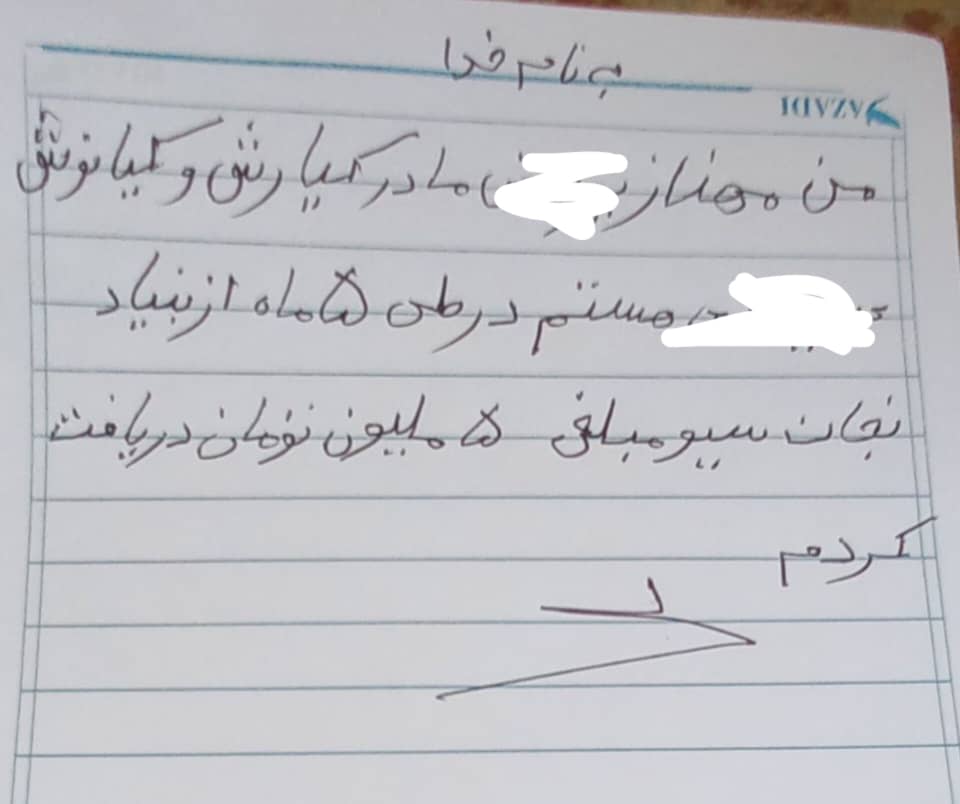 به نام خدا
AZADI
من مهناز مادر کیارش و کیانوش
هستم در طی ۵ ماه از بنیاد
نجات سیو مبلغ ۵ ملیون تومان دریافت
کردم